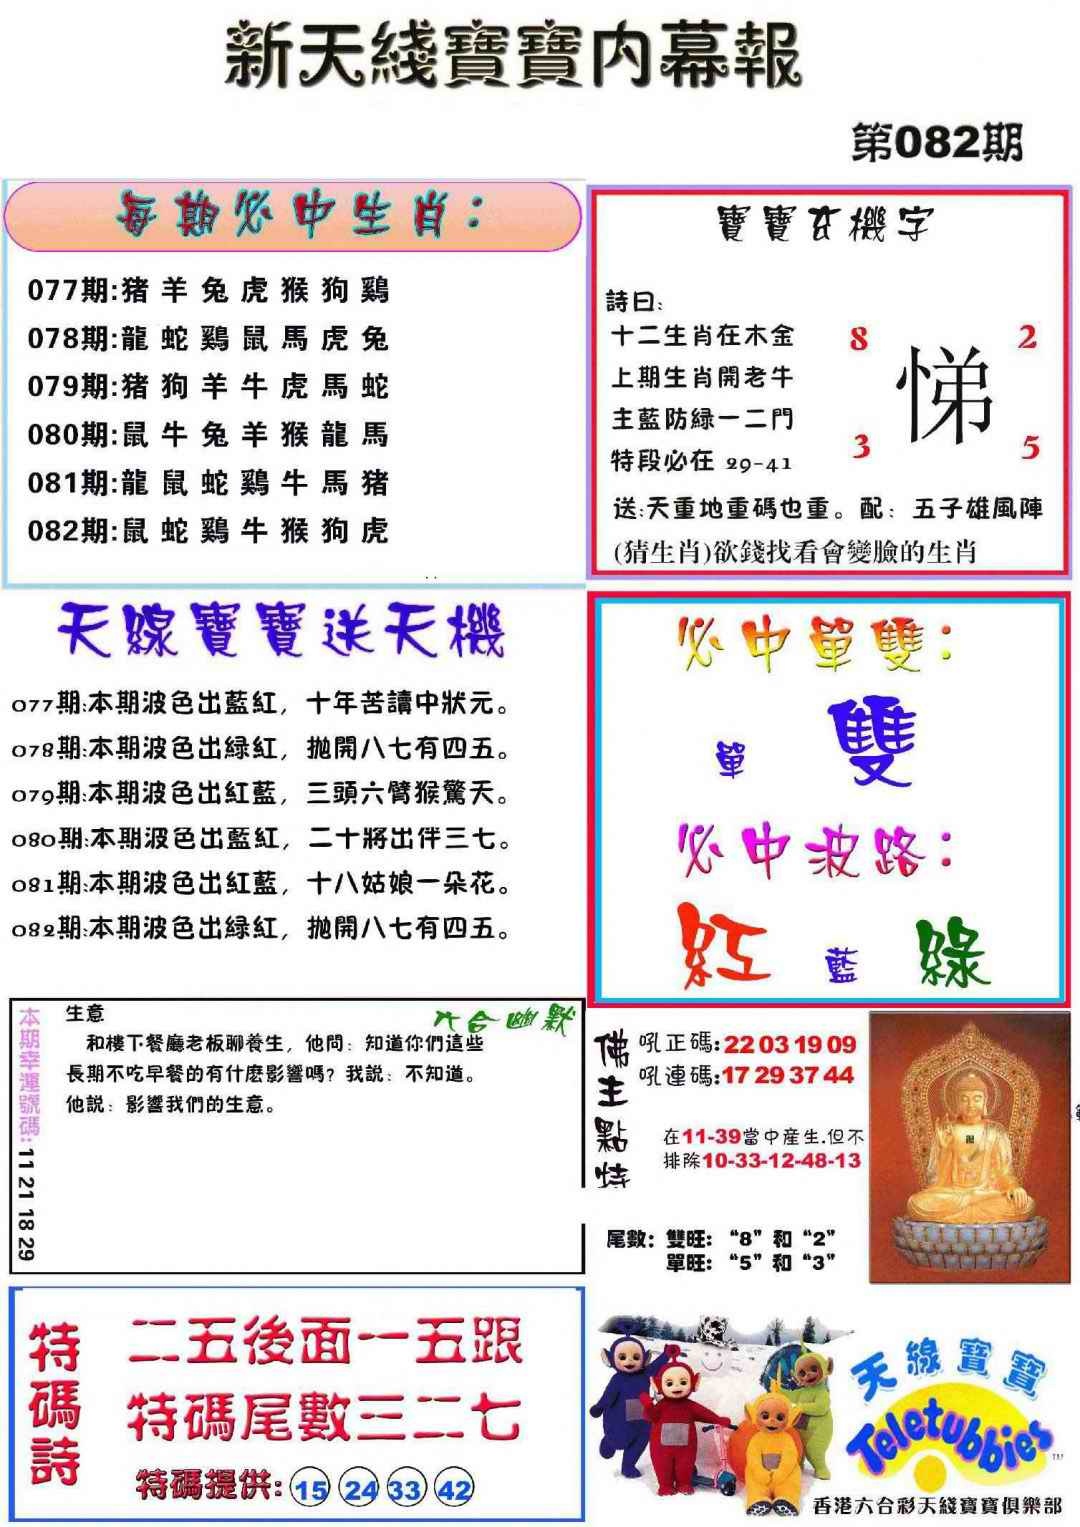 新天綫寶寶内幕報
第082期
每期必中生肖：
077期:猪羊兔虎猴狗鷄
078期:龍蛇鷄鼠馬虎兔
079期:猪狗羊牛虎馬蛇
080期:鼠牛兔羊猴龍馬
081期:龍鼠蛇鷄牛馬猪
082期:鼠蛇鷄牛猴狗虎
寶寶玄機字
詩曰:
十二生肖在木金
上期生肖開老牛
主藍防緑一二門
特段必在 29-41
8
2
悌
3
5
送:天重地重碼也重。配：五子雄風陣
(猜生肖)欲錢找看會變臉的生肖
天線寶寶送天機
077期:本期波色出藍紅，十年苦讀中狀元。
078期:本期波色出緑紅，拋開八七有四五。
079期:本期波色出紅藍，三頭六臂猴驚天。
080期:本期波色出藍紅，二十將出伴三七。
081期:本期波色出紅藍，十八姑娘一朵花。
082期:本期波色出緑紅，拋開八七有四五。
必中單雙：
單 雙
必中波路：
紅 藍 綠
本期幸運號碼:11 21 18 29
六合幽默
生意
和樓下餐廳老板聊養生，他問：知道你們這些
長期不吃早餐的有什麽影響嗎？我説：不知道。
他説：影響我們的生意。
佛主點特
吼正碼:22 03 19 09
吼連碼:17 29 37 44
在11-39當中産生.但不
排除10-33-12-48-13
尾數：雙旺：“8”和“2”
單旺：“5”和“3”
特碼詩
二五後面一五跟
特碼尾數三二七
特碼提供: 15 24 33 42
天線寶寶
Teletubbies
TM
香港六合彩天綫寶寶俱樂部